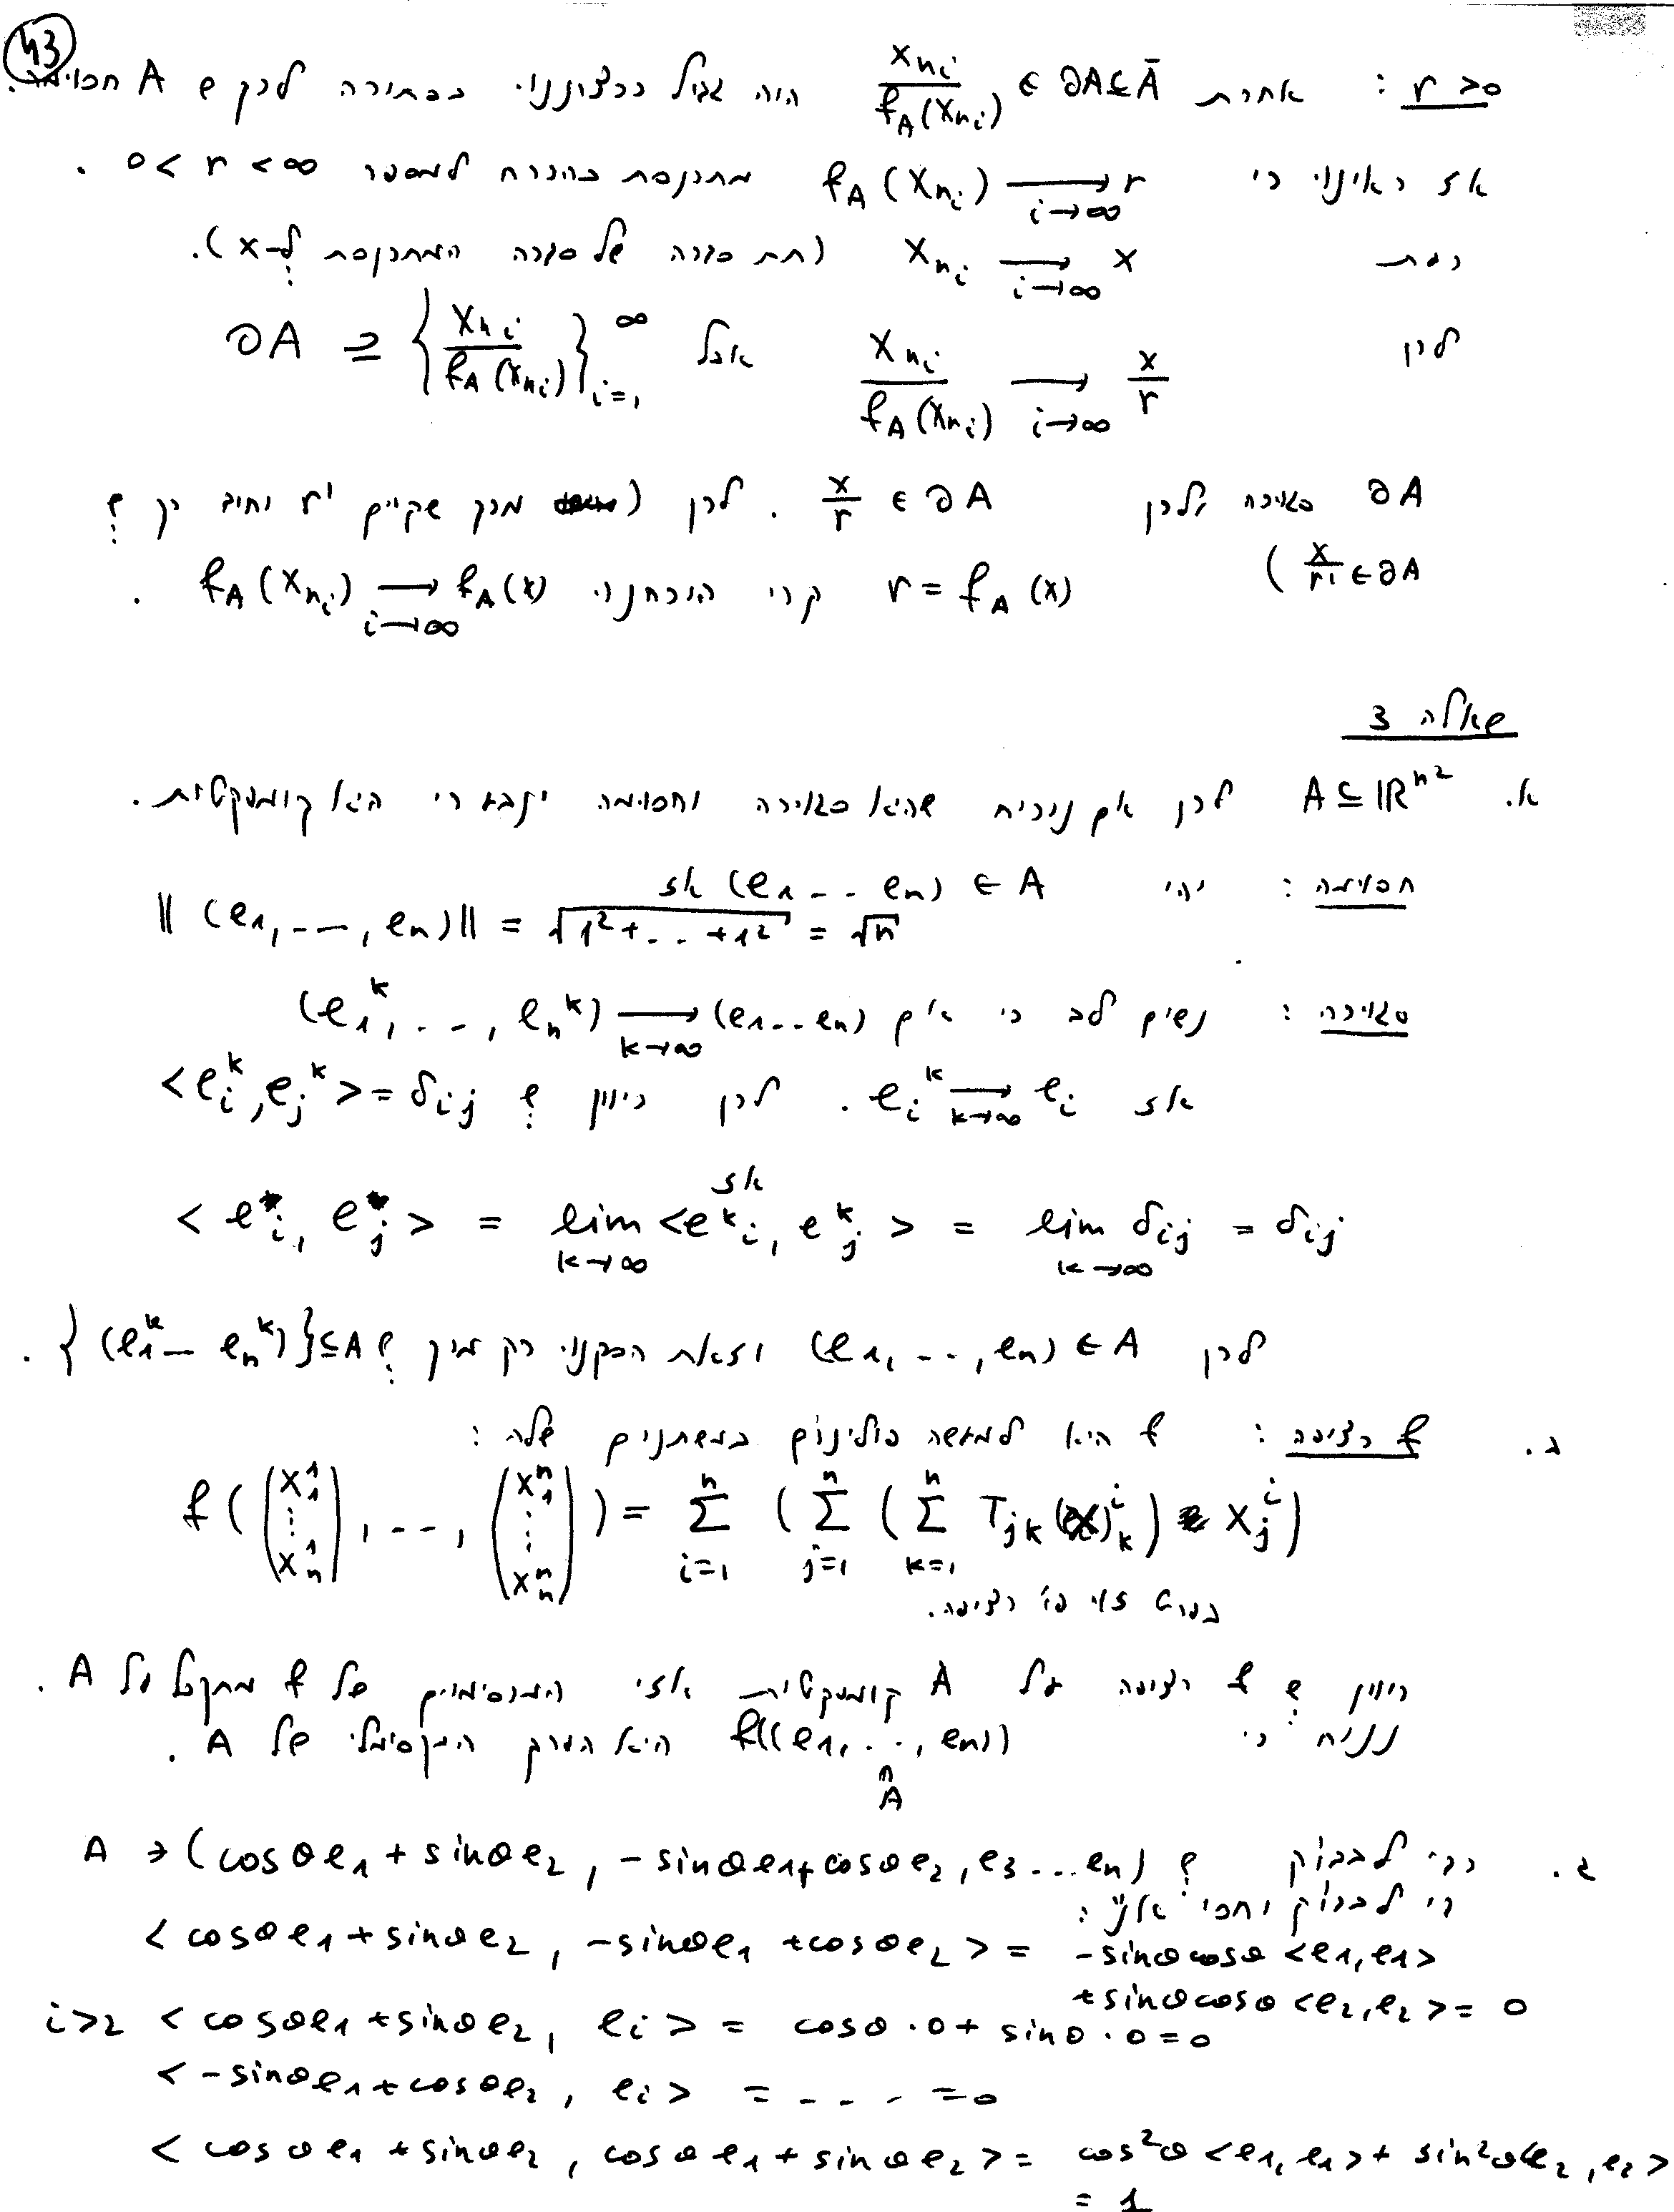 43
r>0 : אחרת x_{n_i}/f_A(x_{n_i}) ∈ ∂A⊆Ā היה גדול כרצוננו בסתירה לכך ש A חסומה.
אז ראינו כי f_A(x_{n_i}) →_{i→∞} r מתכנסת בהכרח למספר 0<r<∞ .
כעת x_{n_i} →_{i→∞} x (תת סדרה של סדרה המתכנסת ל-x).
לכן x_{n_i}/f_A(x_{n_i}) →_{i→∞} x/r אבל ∂A ⊇ {x_{n_i}/f_A(x_{n_i})}_{i=1}^∞
∂A סגורה ולכן x/r ∈ ∂A . לכן ( מכך שקיים r' יחיב כך ש
x/r' ∈ ∂A ) r = f_A(x) קרי הוכחנו f_A(x_{n_i}) →_{i→∞} f_A(x) .
שאלה 3
א. A ⊆ ℝ^{n²} לכן אם נוכיח שהיא סגורה וחסומה ינבע כי היא קומפקטית.
חסומה : יהי (e_1 .. e_n) ∈ A אז
‖(e_1,--,e_n)‖ = √(1²+..+1²) = √n
סגורה : נשים לב כי אם (e_1^k,..,e_n^k) →_{k→∞} (e_1..e_n)
אז e_i^k →_{k→∞} e_i . לכן כיוון ש <e_i^k,e_j^k> = δ_{ij}
אז
<e_i, e_j> = lim_{k→∞} <e_i^k, e_j^k> = lim_{k→∞} δ_{ij} = δ_{ij}
לכן (e_1,--,e_n) ∈ A וזאת הסקנו רק מכך ש {(e_1^k – e_n^k)}⊆A .
ב. f רציפה : f היא למעשה פולינום במשתנים שלה :
f((x_1^1 ⋮ x_n^1),--,(x_1^n ⋮ x_n^n)) = Σ_{i=1}^n (Σ_{j=1}^n (Σ_{k=1}^n T_{jk}(x)_k^i) x_j^i)
בפרט זוהי פ' רציפה.
כיוון ש f רציפה על A קומפקטית אזי המכסימום של f מתקבל על A .
נניח כי f((e_1,..,e_n)) היא הערך המקסימלי של A .
∩ A
ג. כדי לבדוק ש A ∋ (cosθe_1+sinθe_2, -sinθe_1+cosθe_2, e_3...e_n)
יש לבדוק יחסי א"נ :
<cosθe_1+sinθe_2, -sinθe_1+cosθe_2> = -sinθcosθ<e_1,e_1>
+sinθcosθ<e_2,e_2> = 0
i>2 <cosθe_1+sinθe_2, e_i> = cosθ·0+sinθ·0=0
<-sinθe_1+cosθe_2, e_i> = - - - =0
<cosθe_1+sinθe_2, cosθe_1+sinθe_2> = cos²θ<e_1,e_1>+sin²θ<e_2,e_2>
= 1